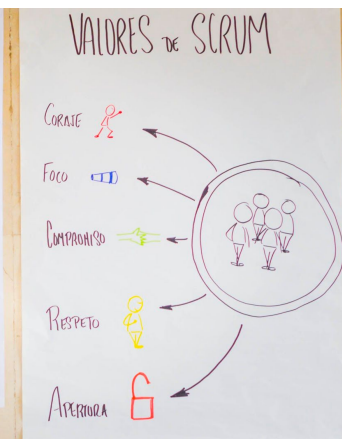 VALORES DE SCRUM
CORAJE
FOCO
COMPROMISO
RESPETO
APERTURA